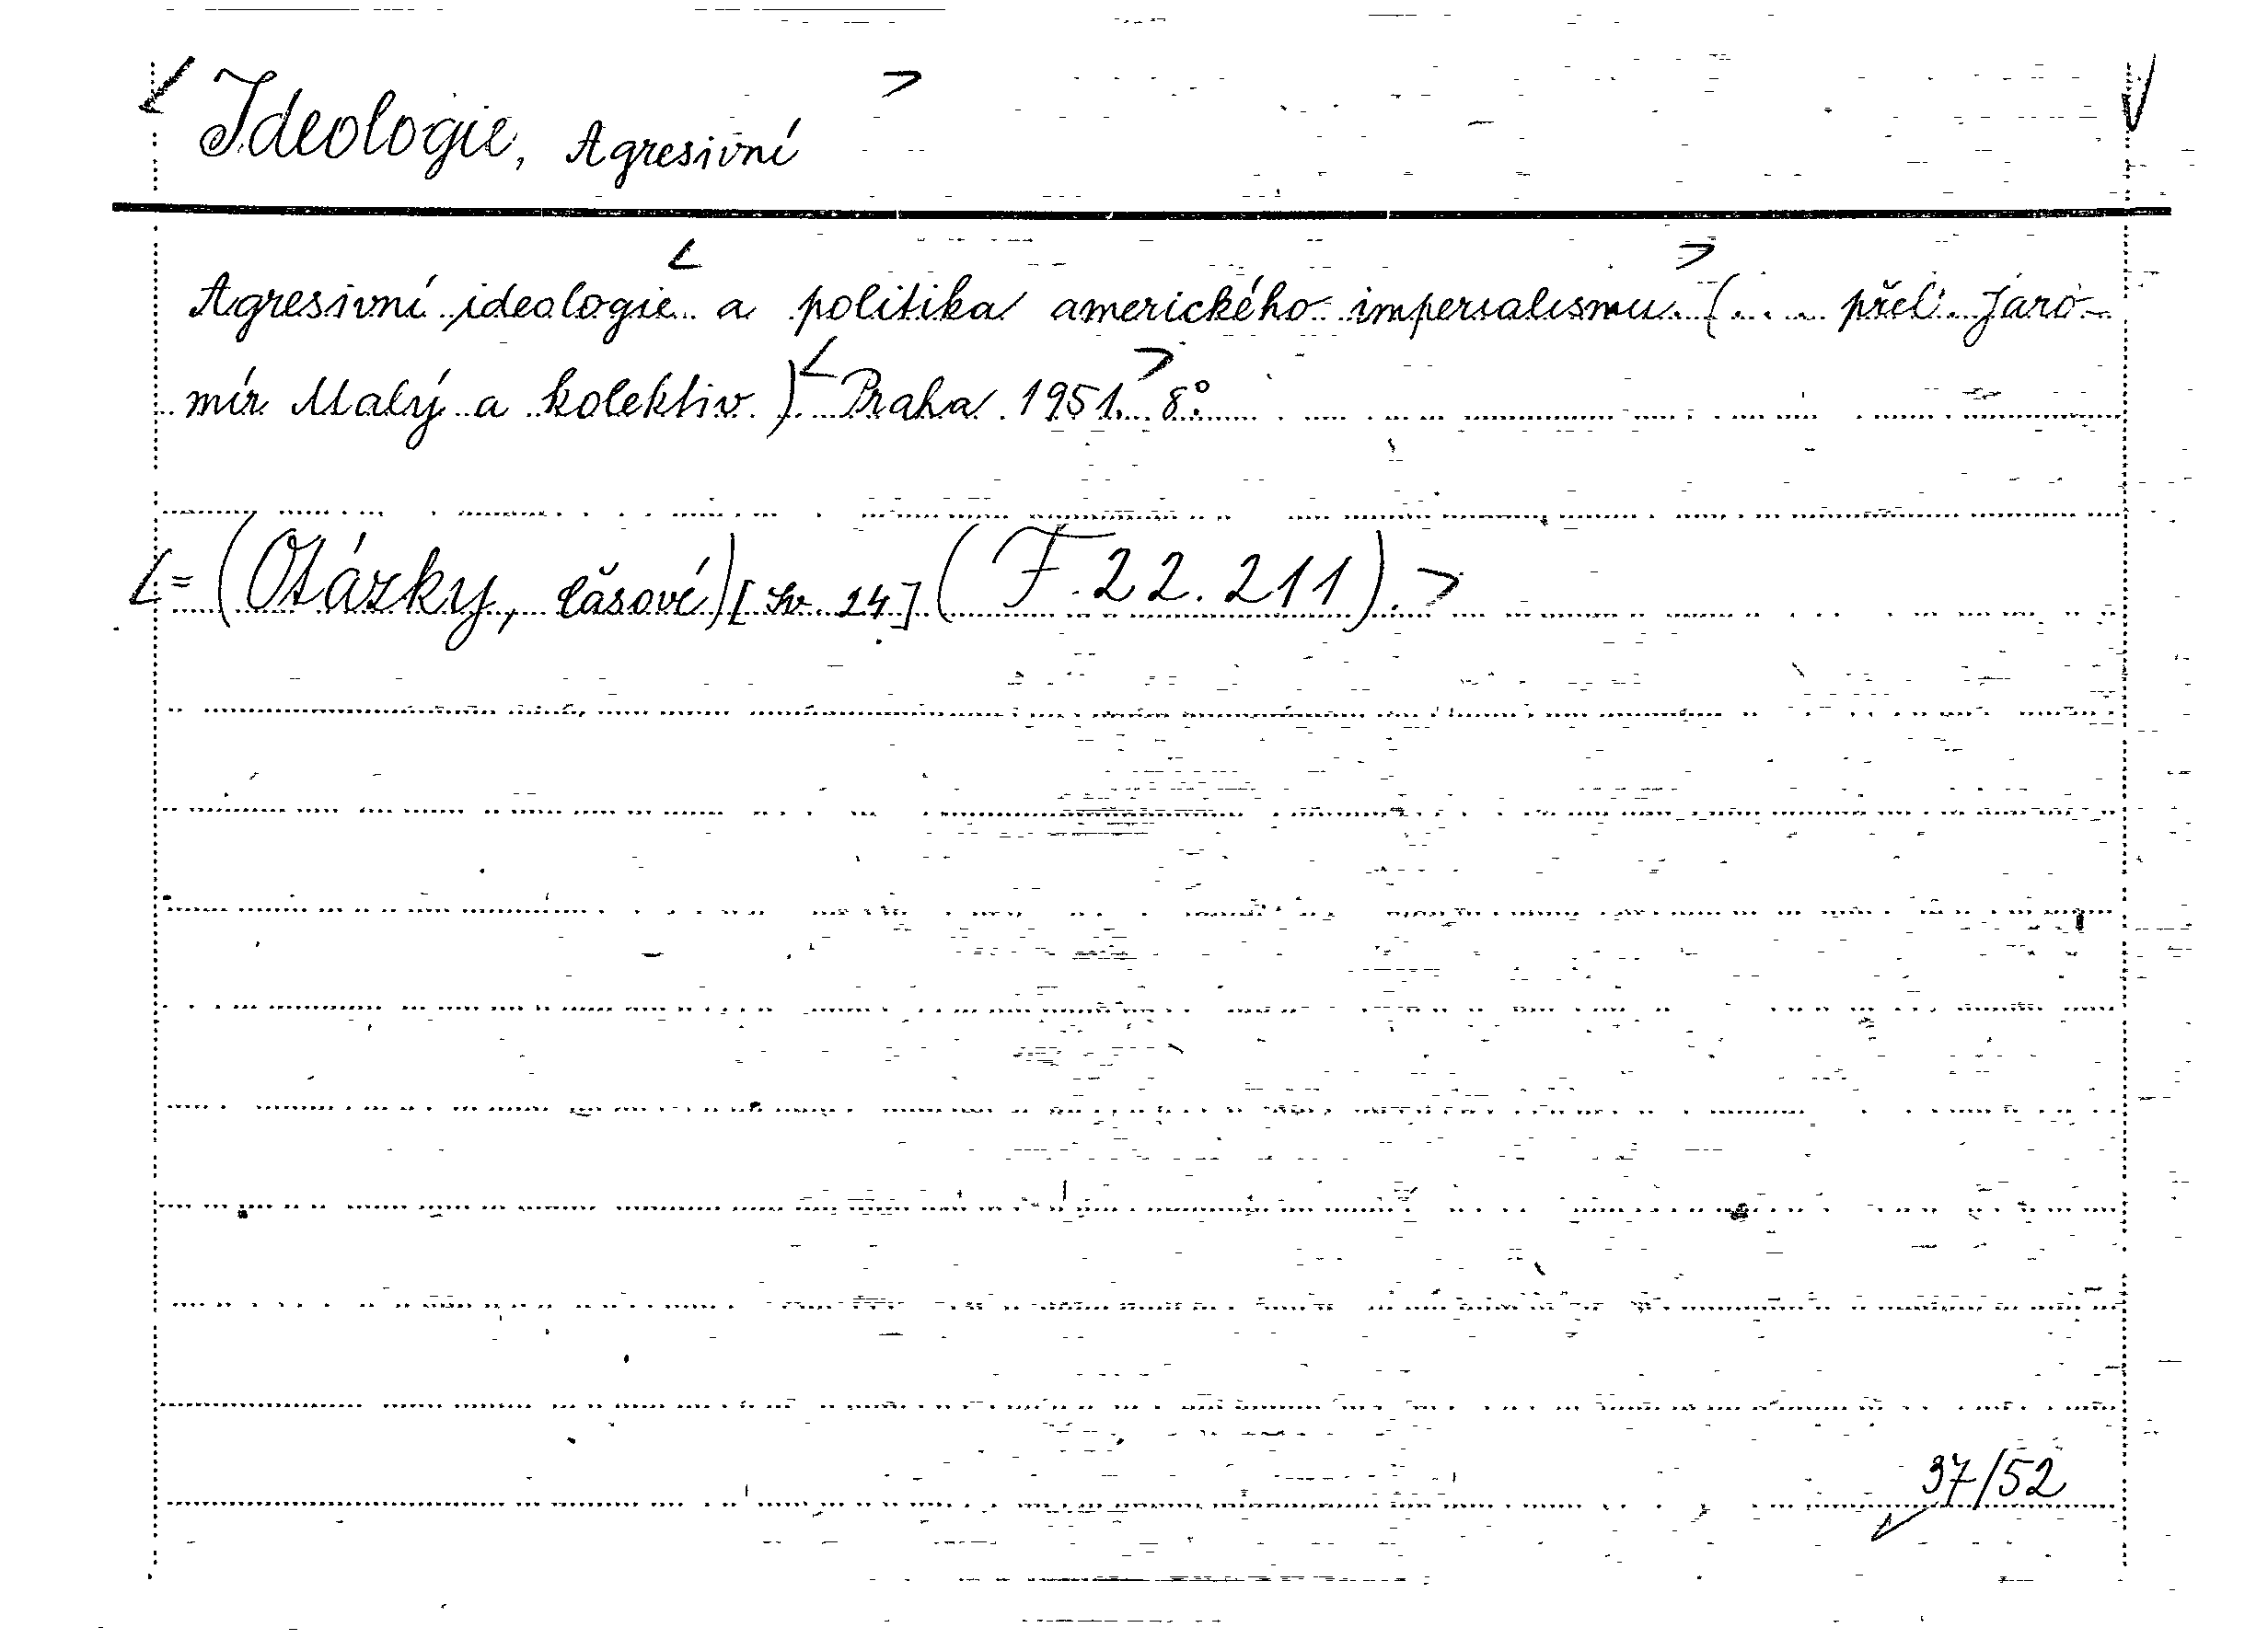 Ideologie, Agresivní
Agresivní ideologie a politika amerického imperialismu. (... přel. Jaro-
mír Malý a kolektiv.) Praha 1951. 8°.
= (Otázky, časové) [Sv. 24] (F. 22.211).
37/52